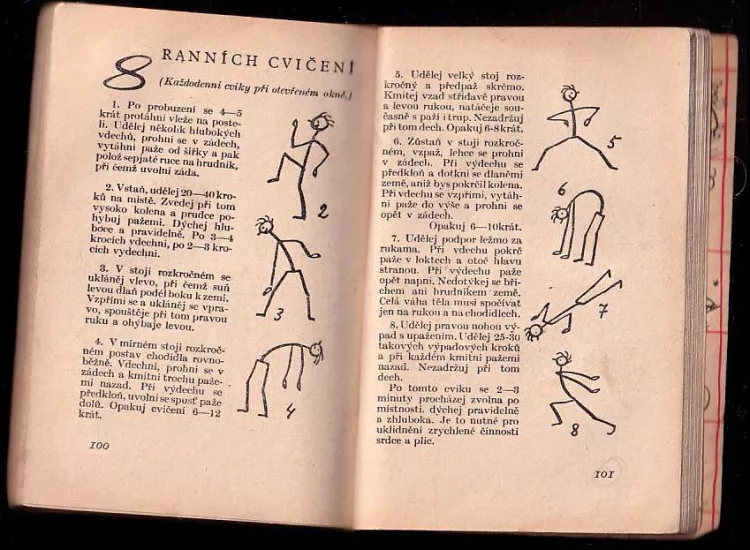 8 RANNÍCH CVIČENÍ
(Každodenní cviky při otevřeném okně.)
1. Po probuzení se 4—5
krát protáhni vleže na poste-
li. Udělej několik hlubokých
vdechů, prohni se v zádech,
vytáhni paže od šířky a pak
polož sepjaté ruce na hrudník,
při čemž uvolni záda.
2. Vstaň, udělej 20—40 kro-
ků na místě. Zvedej při tom
vysoko kolena a prudce po-
hybuj pažemi. Dýchej hlu-
boce a pravidelně. Po 3—4
krocích vdechni, po 2—3 kro-
cích vydechni.
2
3. V stoji rozkročném se
ukláněj vlevo, při čemž suň
levou dlaň podél boku k zemi.
Vzpřimi se a ukláněj se vpra-
vo, spouštěje při tom pravou
ruku a ohýbaje levou.
3
4. V mírném stoji rozkroč-
ném postav chodidla rovno-
běžně. Vdechni, prohni se v
zádech a kmitni trochu paže-
mi nazad. Při výdechu se
předkloň, uvolni se spusť paže
dolů. Opakuj cvičení 6—12
krát.
4
100
5. Udělej velký stoj roz-
kročný a předpaž skrčmo.
Kmitej vzad střídavě pravou
a levou rukou, natáčeje sou-
časně s paží i trup. Nezadržuj
při tom dech. Opakuj 6-8krát.
5
6. Zůstaň v stoji rozkroč-
ném, vzpaž, lehce se prohni
v zádech. Při výdechu se
předkloň a dotkni se dlaněmi
země, aniž bys pokrčil kolena.
Při vdechu se vzpřimi, vytáh-
ni paže do výše a prohni se
opět v zádech.
Opakuj 6—10krát.
6
7. Udělej podpor ležmo za
rukama. Při vdechu pokrč
paže v loktech a otoč hlavu
stranou. Při výdechu paže
opět napni. Nedotýkej se bři-
chem ani hrudníkem země.
Celá váha těla musí spočívat
jen na rukou a na chodidlech.
7
8. Udělej pravou nohou vý-
pad s upažením. Udělej 25-30
takových výpadových kroků
a při každém kmitni pažemi
nazad. Nezadržuj při tom
dech.
Po tomto cviku se 2—3
minuty procházej zvolna po
místnosti, dýchej pravidelně
a zhluboka. Je to nutné pro
uklidnění zrychlené činnosti
srdce a plic.
8
101